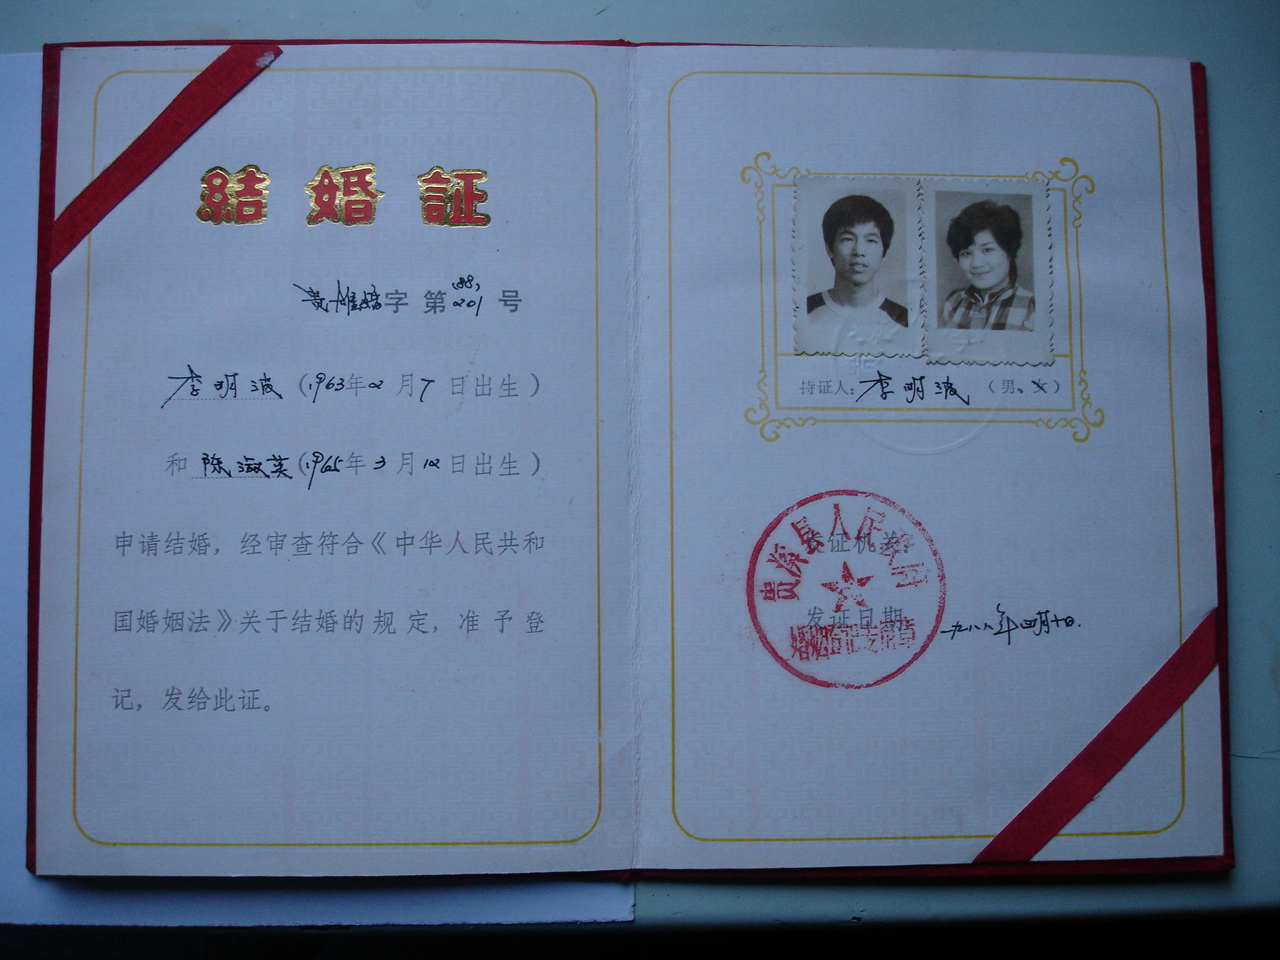 結婚証
字第(88)201号
李明波(1963年2月7日出生)
和陈淑英(1965年3月12日出生)
申请结婚，经审查符合《中华人民共和
国婚姻法》关于结婚的规定，准予登
记，发给此证。
持证人：李明波（男、女）
贵溪县人民政府
发证机关：
发证日期：一九八八年四月十日.
婚姻登记专用章